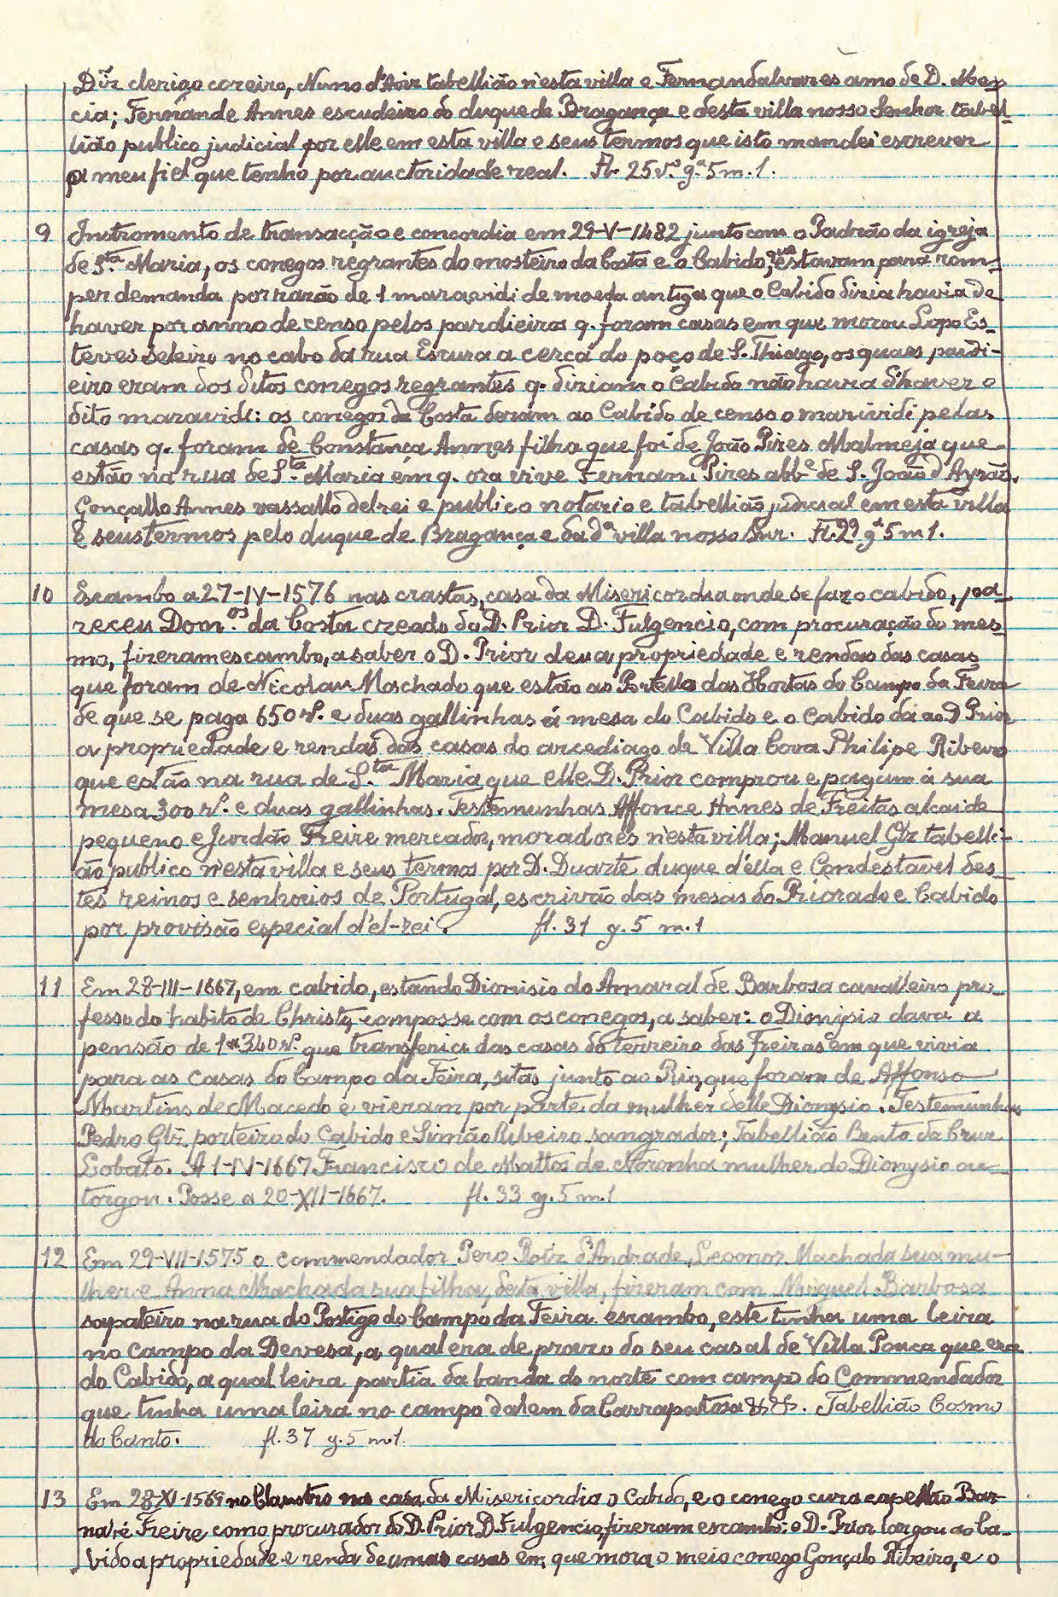 Diz clerigo coreiro, Nuno d'Aviz tabellião n'esta villa e Fernandalvares amo de D. Me-
cia; Fernande Annes escudeiro do duque de Bragança e desta villa nosso Senhor tabel-
lião publico judicial por elle em esta villa e seus termos que isto mandei escrever
a meu fiel que tenho por auctoridade real. Fl. 25 v.º g.ª 5 m. 1.
9 Instromento de transacção e concordia em 29-V-1482 junto com o Padrão da igreja
de S.ta Maria, os conegos regrantes do mosteiro da Costa e o Cabido, que estavam para rom-
per demanda por razão de 1 maravidi de moeda antiga que o Cabido dizia havia de
haver por anno de censo pelos pardieiros q. foram casas em que morou Lopo Es-
teves seleiro no cabo da rua Escura a cerca do poço de S. Thiago, os quaes pardi-
eiro eram dos ditos conegos regrantes q. diziam o Cabido não havia d'haver o
dito maravidi: os conegos da Costa deram ao Cabido de censo o marividi pelas
casas q. foram de Constança Annes filha que foi de João Pires Malmeja que
estão na rua de S.ta Maria em q. ora vive Fernam Pires abb.e de S. João d'Ayrão.
Gonçallo Annes vassallo del rei e publico notario e tabellião judicial em esta villa
e seus termos pelo duque de Bragança e da d.ª villa nosso Snr. Fl. 29 g.ª 5 m 1.
10 Escambo a 27-IV-1576 nas crastas, casa da Misericordia onde se faz o cabido, pa-
receu Dom.os da Costa creado do D. Prior D. Fulgencio, com procuração do mes-
mo, fizeram escambo, a saber o D. Prior deu a propriedade e rendas das casas
que foram de Nicolau Machado que estão ao Portello das Hortas do Campo da Feira
de que se paga 650 rs. e duas gallinhas á mesa do Cabido e o Cabido dá ao D. Prior
a propriedade e rendas das casas do arcediago de Villa Cova Philipe Ribeiro
que estão na rua de S.ta Maria que elle D. Prior comprou e pagam á sua
mesa 300 rs. e duas gallinhas. Testemunhas Affonce Annes de Freitas alcaide
pequeno e Jurdão Freire mercador, moradores n'esta villa; Manuel Glz tabelli-
ão publico n'esta villa e seus termos por D. Duarte duque d'ella e Condestavel des-
tes reinos e senhorios de Portugal, escrivão das mesas do Priorado e Cabido
por provisão especial d'el-rei. fl. 31 g. 5 m. 1
11 Em 28-III-1667, em cabido, estando Dionisio do Amaral de Barbosa cavalleiro pro-
fesso do habito de Christo, compos-se com os conegos, a saber: o Dionysio dava a
pensão de 1$340 rs. que transferia das casas do terreiro das Freiras em que vivia
para as casas do Campo da Feira, sitas junto ao Rio, que foram de Affonso
Martins de Macedo e vieram por parte da mulher delle Dionysio. Testemunhas
Pedro Glz porteiro do Cabido e Simão Ribeiro sangrador; Tabellião Bento da Cruz
Lobato. A 1-IV-1667 Francisca de Mattos de Noronha mulher do Dionysio ou-
torgou. Posse a 20-XII-1667. fl. 33 g. 5 m. 1
12 Em 29-VII-1575 o commendador Pero Roiz d'Andrade, Leonor Machada sua mu-
lher e Anna Machada sua filha, desta villa, fizeram com Miguel Barbosa
sapateiro na rua do Postigo do Campo da Feira escambo, este tinha uma leira
no campo da Devesa, a qual era de prazo do seu casal de Villa Pouca que era
do Cabido, a qual leira partia da banda do norte com campo do Commendador
que tinha uma leira no campo dalem da Carrapatosa &&. Tabellião Cosmo
do Canto. fl. 37 g. 5 m. 1
13 Em 28-XI-1569 no Claustro na casa da Misericordia o Cabido, e o conego cura capellão Bar-
nabé Freire como procurador do D. Prior D. Fulgencio, fizeram escambo: o D. Prior largou ao Ca-
bido a propriedade e renda de umas casas em que mora o meio conego Gonçalo Ribeiro, e o